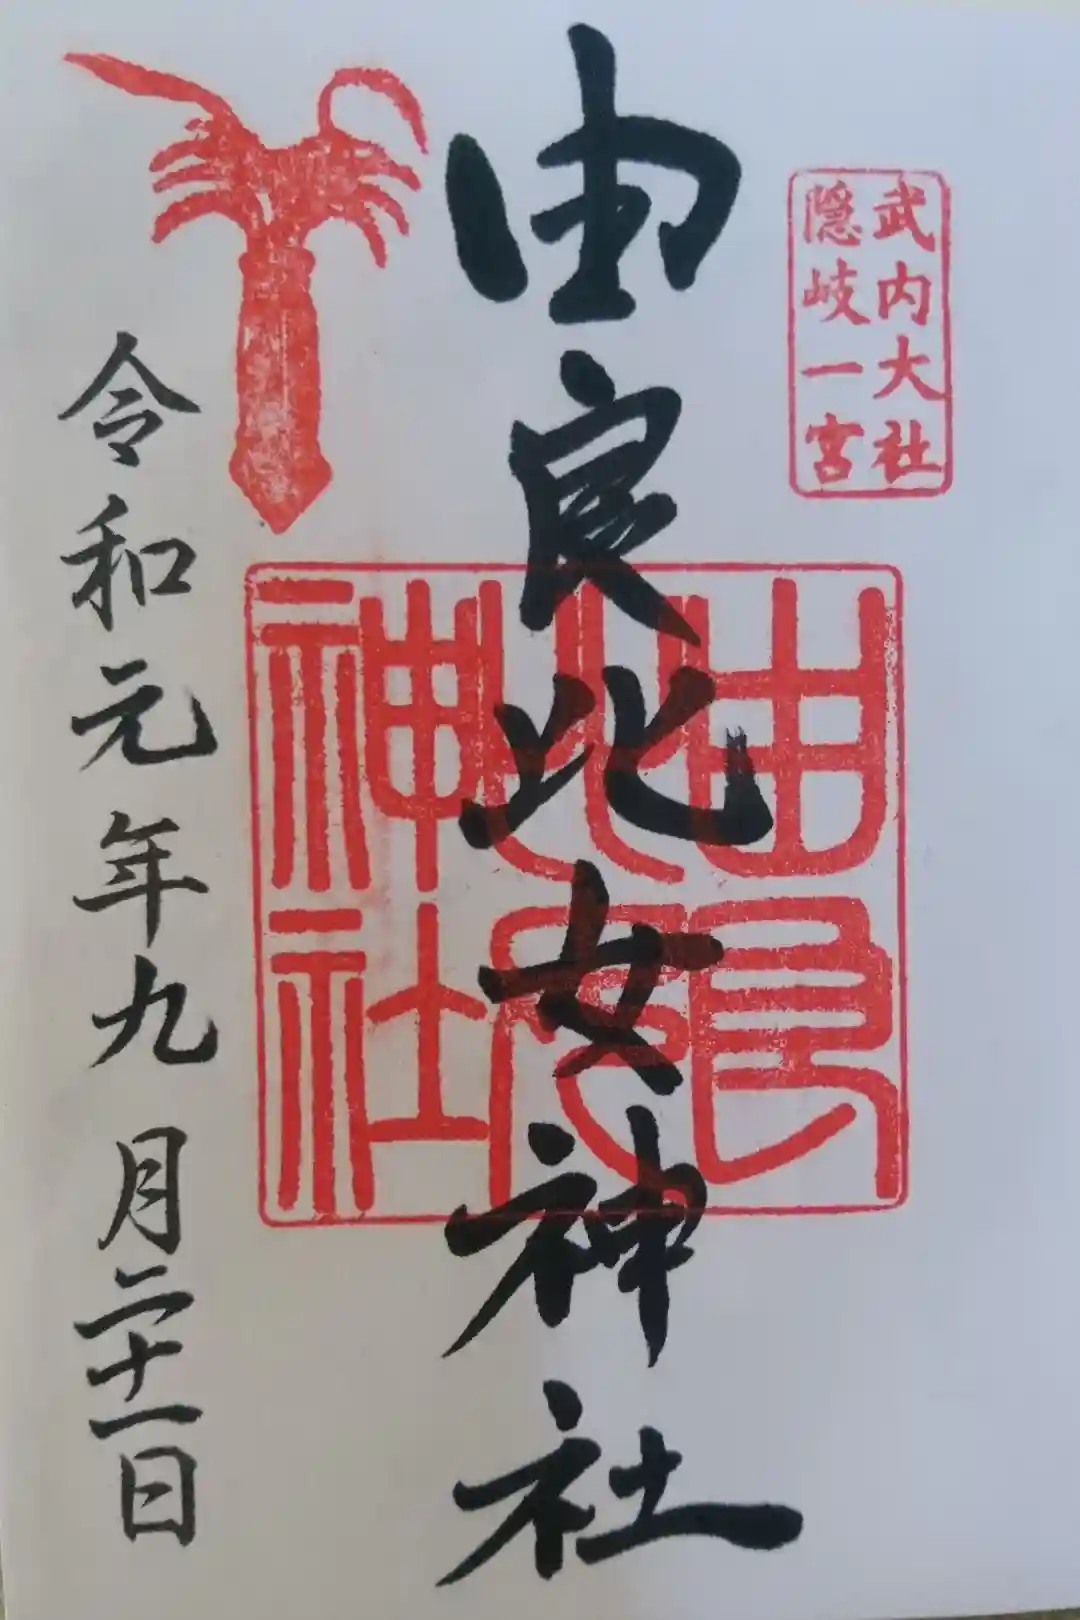 武内大社
隠岐一宮
由良比女神社
由良比女神社
令和元年九月二十一日